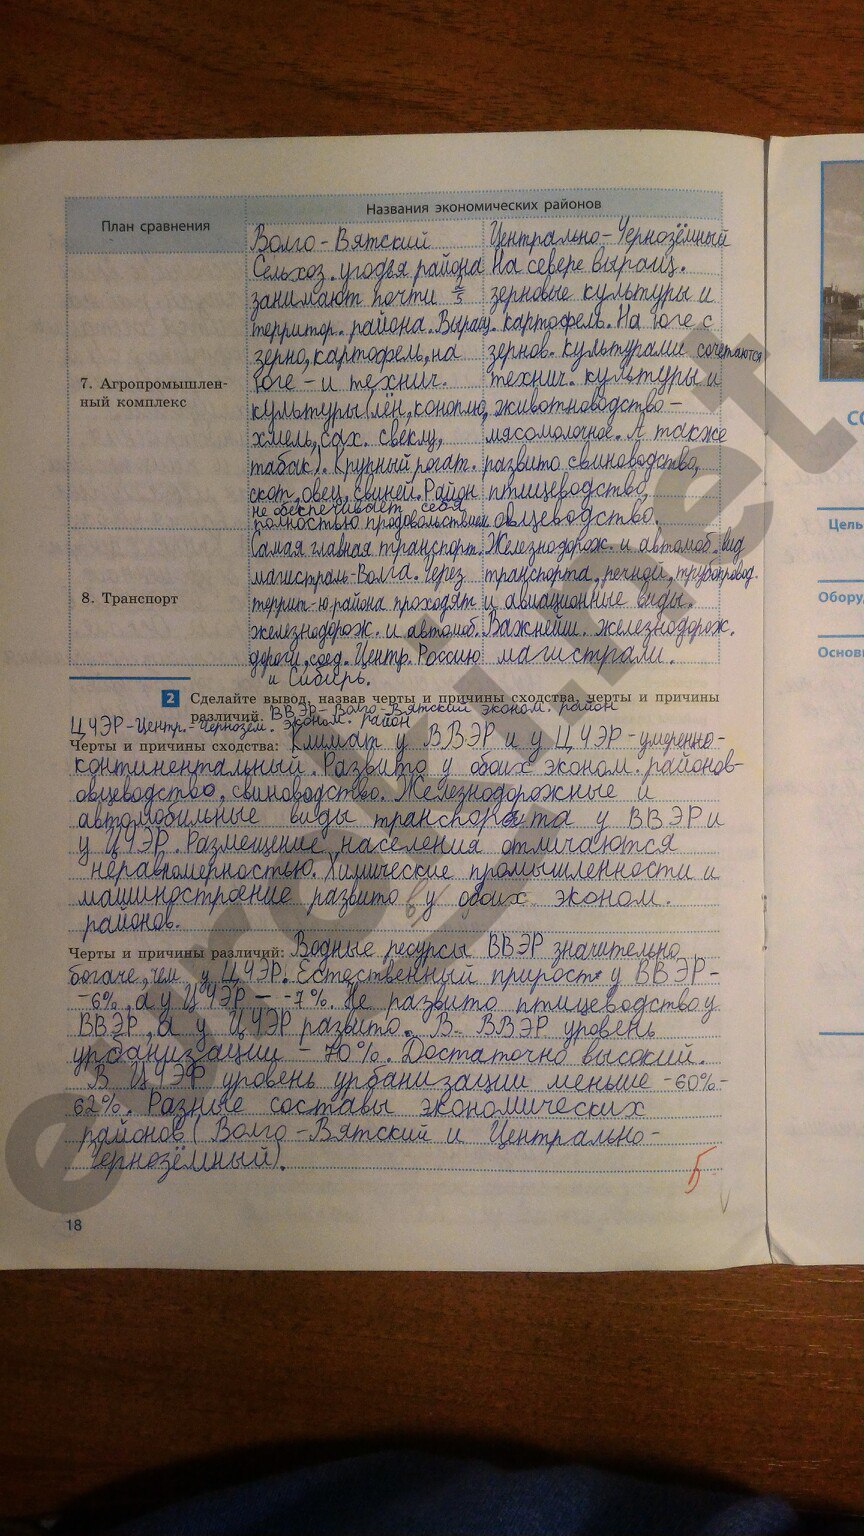 План сравнения
Названия экономических районов
Волго-Вятский
Центрально-Чернозёмный
7. Агропромышлен-
ный комплекс
Сельхоз. угодья района
занимают почти 2/5
территор. района. Выращ.
зерно, картофель, на
юге – и технич.
культуры (лён, коноплю,
хмель, сах. свеклу,
табак). Крупный рогат.
скот, овец, свиней. Район
не обеспечивает себя
полностью продовольствием
На севере выращ.
зерновые культуры и
картофель. На юге с
зернов. культурами сочетаются
технич. культуры и
животноводство –
мясомолочное. А также
развито свиноводство,
птицеводство,
овцеводство.
8. Транспорт
Самая главная транспорт.
магистраль-Волга. Через
террит-ю района проходят
железнодорож. и автомоб.
дороги, соед. Центр. Россию
и Сибирь.
Железнодорож. и автомоб. вид
транспорта, речной, трубопровод.
и авиационные виды.
Важнейш. железнодорож.
магистрали.
2 Сделайте вывод, назвав черты и причины сходства, черты и причины
различий. ВВЭР- Волго-Вятский эконом. район
ЦЧЭР-Центр.-Чернозём. эконом. район
Черты и причины сходства: Климат у ВВЭР и у ЦЧЭР -умеренно-
континентальный. Развито у обоих эконом. районов-
овцеводство, свиноводство. Железнодорожные и
автомобильные виды транспорта у ВВЭР и
у ЦЧЭР. Размещение населения отличаются
неравномерностью. Химические промышленности и
машиностроение развито у обоих эконом.
районов.
Черты и причины различий: Водные ресурсы ВВЭР значительно
богаче, чем у ЦЧЭР. Естественный прирост у ВВЭР -
-6%, а у ЦЧЭР – -7%. Не развито птицеводство у
ВВЭР, а у ЦЧЭР развито. В ВВЭР уровень
урбанизации – 70%. Достаточно высокий.
В ЦЧЭР уровень урбанизации меньше -60%-
62%. Разные составы экономических
районов (Волго-Вятский и Центрально-
Чернозёмный).
5
18
СО
Цель
Обору
Основ
euroki.net